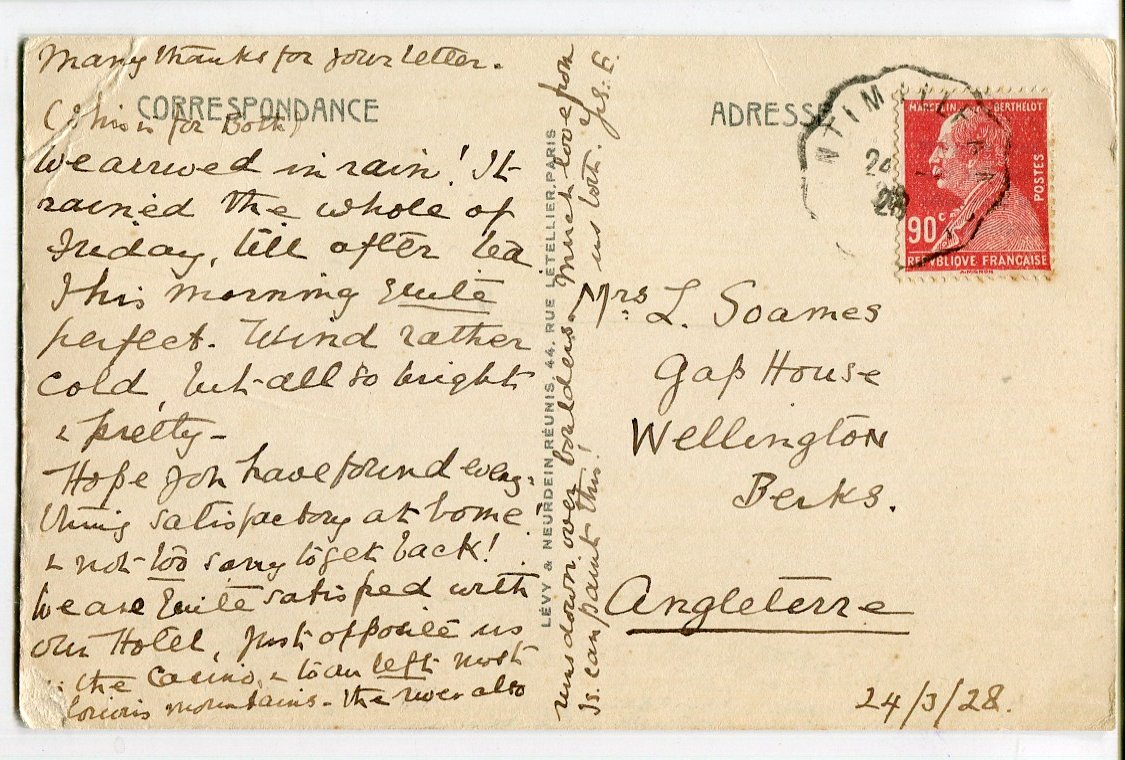 Many thanks for your letter.
CORRESPONDANCE
(This is for Both)
We arrived in rain! It
rained the whole of
Friday, till after tea
This morning quite
perfect. Wind rather
cold, but all so bright
& pretty -
Hope you have found every-
thing satisfactory at home
& not too sorry to get back!
We are quite satisfied with
our Hotel, just opposite us
is the Casino, & to our left most
glorious mountains - the river also
runs down over boulders. Much love from
Is. can paint this! us both. Yrs: E.
LÉVY & NEURDEIN RÉUNIS, 44, RUE LETELLIER, PARIS
ADRESSE
NTIMILLE
24
28
MARCELIN BERTHELOT
POSTES
90c
REPVBLIQVE FRANÇAISE
Mrs. L. Soames
Gap House
Wellington
Berks.
Angleterre
24/3/28.